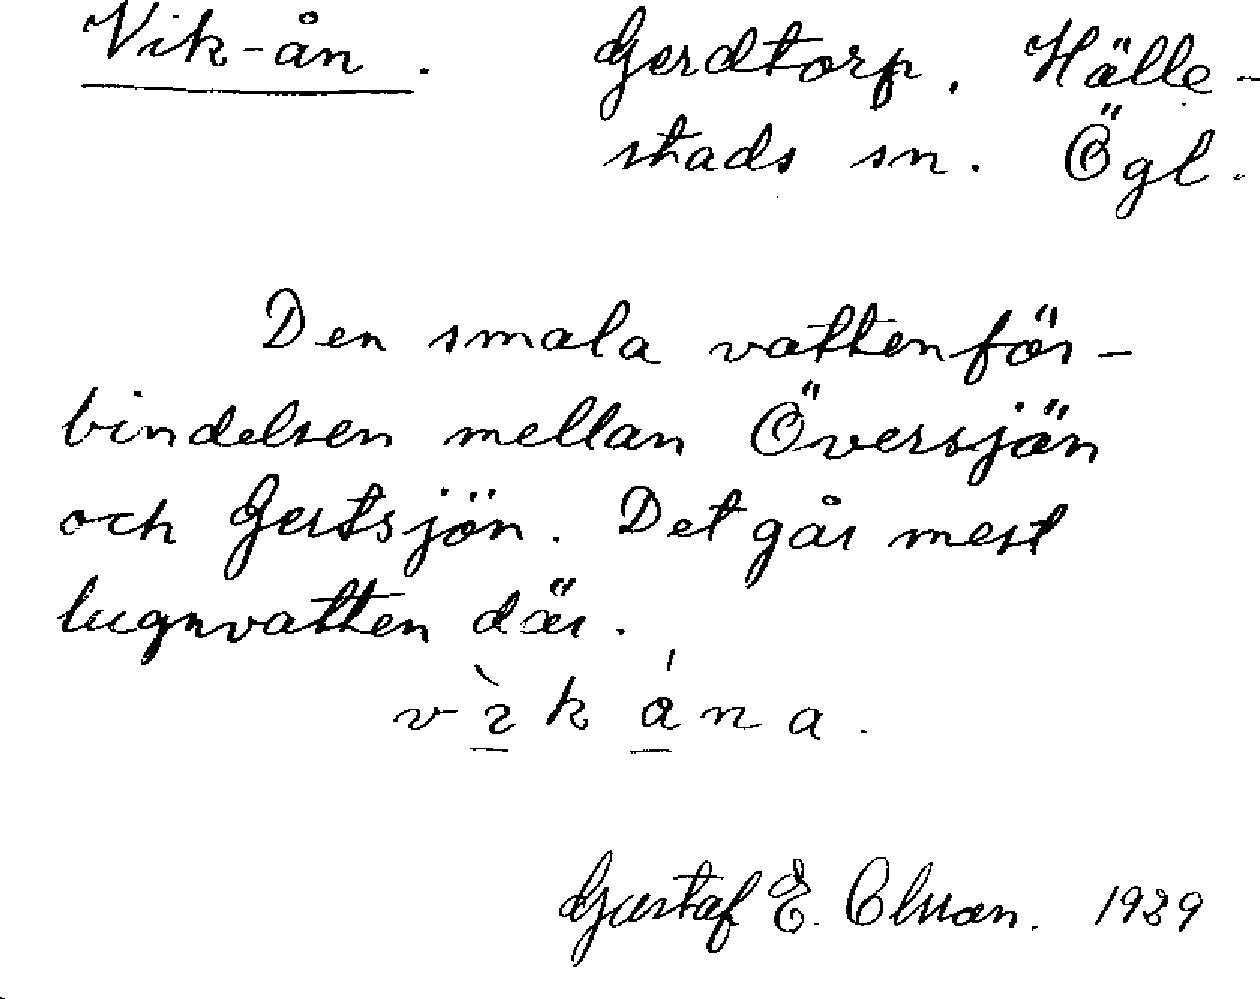 Vik-ån. Gerdtorp, Hälle-
stads sn. Ögl.
Den smala vattenför-
bindelsen mellan Översjön
och Gertsjön. Det går mest
lugnvatten där.
Gustaf E. 1929